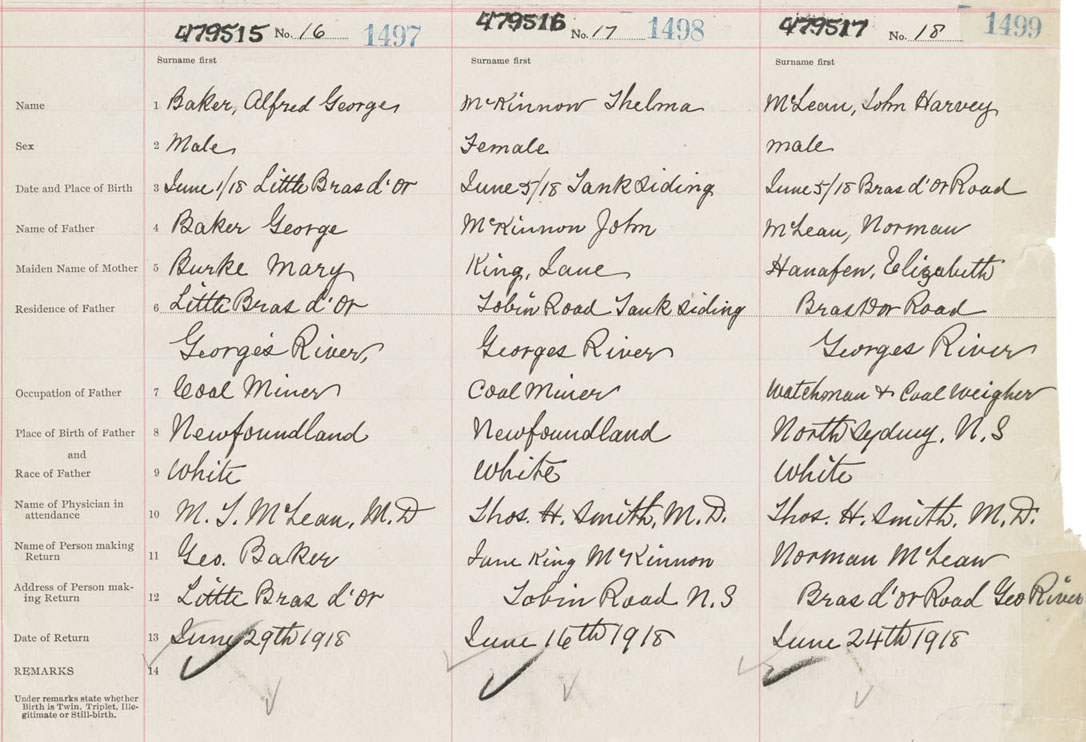 479515 No. 16 1497 479516 No. 17 1498 479517 No. 18 1499
Surname first Surname first Surname first
Name 1 Baker, Alfred George McKinnon Thelma McLean, John Harvey
Sex 2 Male Female male
Date and Place of Birth 3 June 1/18 Little Bras d'Or June 5/18 Tank Siding June 5/18 Bras d'Or Road
Name of Father 4 Baker George McKinnon John McLean, Norman
Maiden Name of Mother 5 Burke Mary King, Jane Hanafen, Elizabeth
Residence of Father 6 Little Bras d'Or Tobin Road Tank Siding Bras Dor Road
George's River, Georges River Georges River
Occupation of Father 7 Coal Miner Coal Miner Watchman & Coal Weigher
Place of Birth of Father 8 Newfoundland Newfoundland North Sydney, N.S
and
Race of Father 9 White White White
Name of Physician in
attendance 10 M. T. McLean, M.D Thos. H. Smith, M.D. Thos. H. Smith, M.D.
Name of Person making
Return 11 Geo. Baker Jane King McKinnon Norman McLean
Address of Person mak-
ing Return 12 Little Bras d'Or Tobin Road N.S Bras d'Or Road Geo River
Date of Return 13 June 29th 1918 June 16th 1918 June 24th 1918
REMARKS 14
Under remarks state whether
Birth is Twin, Triplet, Ille-
gitimate or Still-birth.